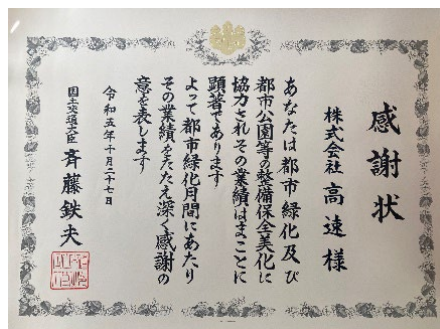 感謝状
株式会社 高速様
あなたは都市緑化及び
都市公園等の整備保全美化に
協力されその業績はまことに
顕著であります
よって都市緑化月間にあたり
その業績をたたえ深く感謝の
意を表します
令和五年十月二十七日
国土交通大臣 斉藤鉄夫